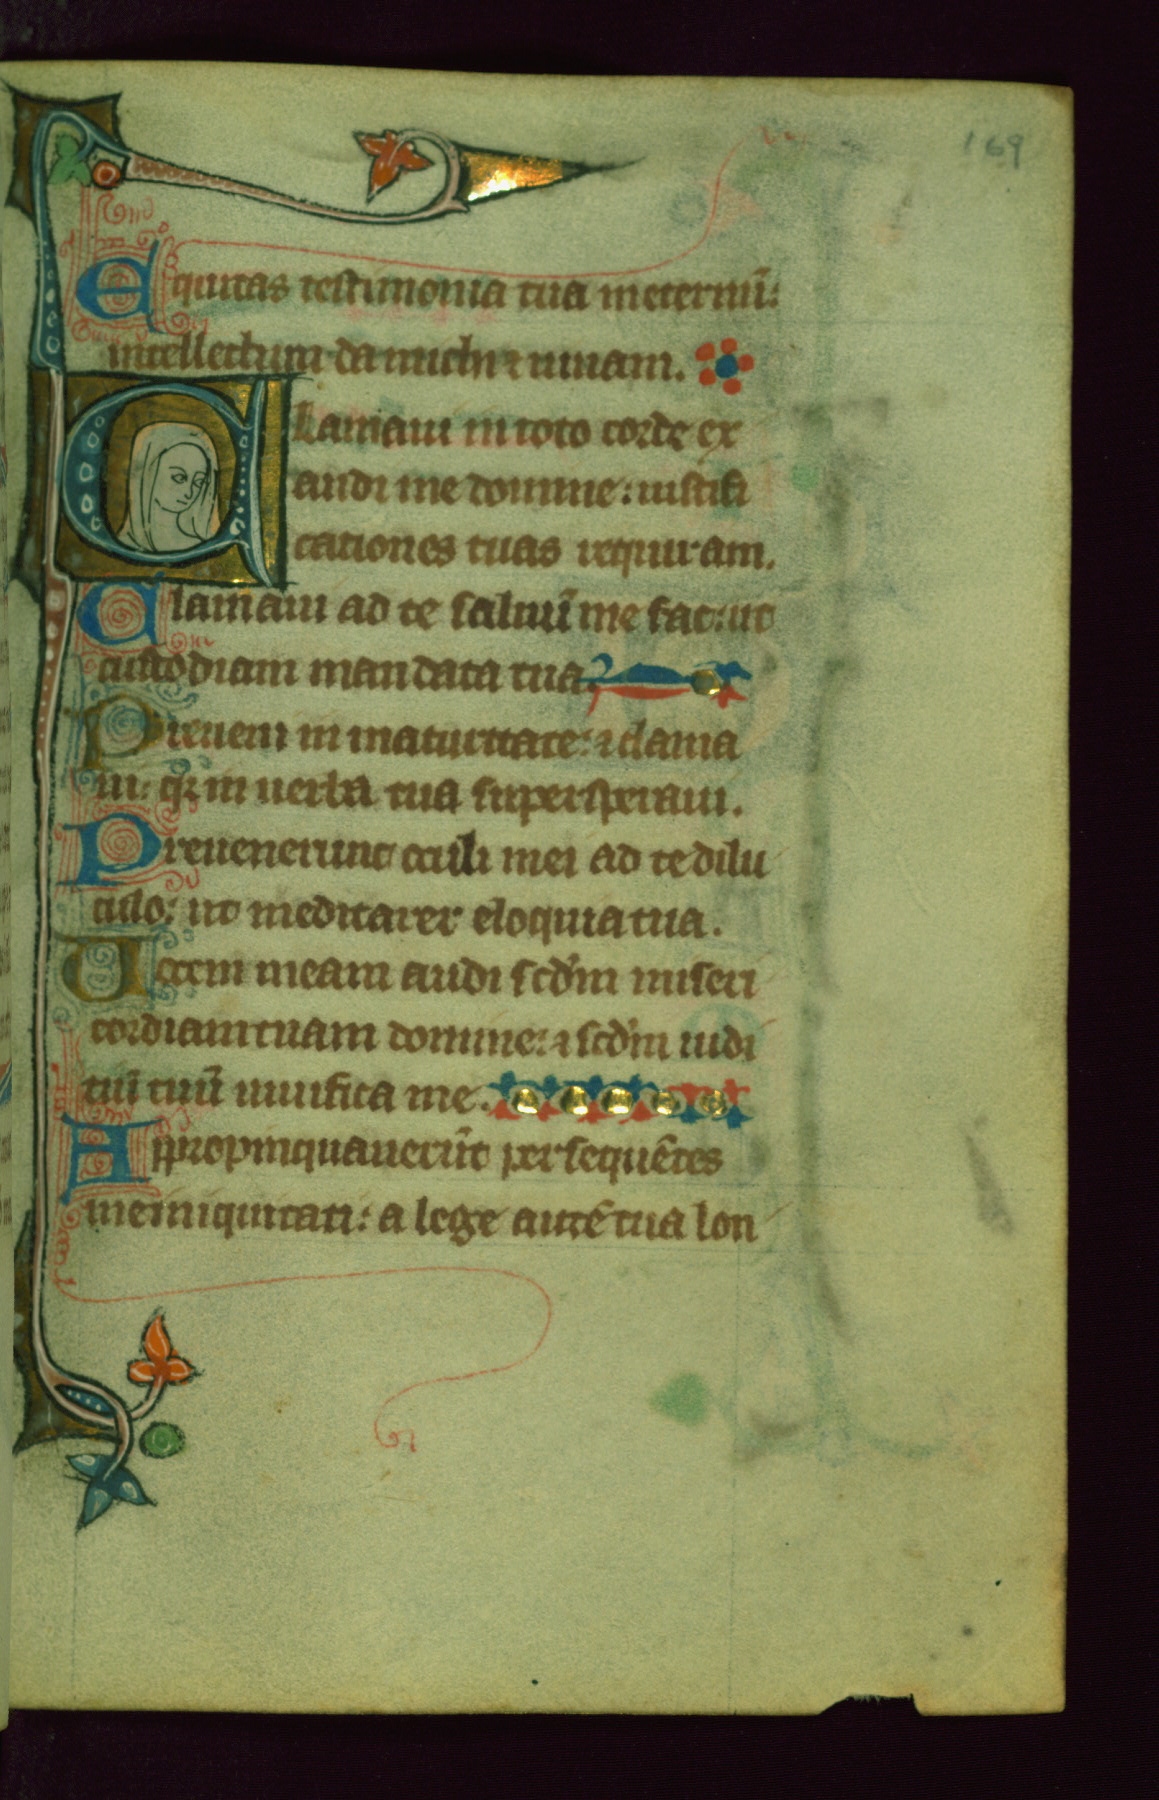 169
Equitas testimonia tua ineternū:
intellectum da michi ⁊ uiuam.
Clamaui in toto corde ex
audi me domine: iustifi
cationes tuas requiram.
Clamaui ad te saluū me fac: ut
custodiam mandata tua.
Preueni in maturitate: ⁊ clama
ui: qr in uerba tua supersperaui.
Preuenerunt oculi mei ad te dilu
culo: ut meditarer eloquia tua.
Uocem meam audi scd̄m miseri
cordiam tuam domine: ⁊ scd̄m iudi
ciū tuū uiuifica me.
Appropinquauerūt persequētes
me iniquitati: a lege autē tua lon